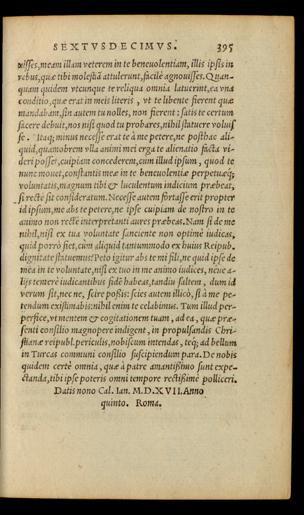 SEXTVSDECIMVS. 395
uisses, meam illam veterem in te beneuolentiam, illis ipsis in
rebus, quæ tibi molestiã attulerunt, facilè agnouisses. Quan-
quam quidem vtcunque te reliqua omnia latuerint, ea vna
conditio, quæ erat in meis literis, vt te libente fierent quæ
mandabam, sin autem tu nolles, non fierent: satis te certum
facere debuit, nos nisi quod tu probares, nihil statuere voluis
se. Itaq; minus necesse erat te à me petere, ne posthac ali-
quid, quanobrem vlla animi mei erga te alienatio facta vi-
deri posset, cuipiam concederem, cum illud ipsum, quod te
nunc mouet, constantis meæ in te beneuolentiæ perpetuæq;
voluntatis, magnum tibi & luculentum indicium præbeat,
si rectè sit consideratum. Necesse autem fortasse erit propter
id ipsum, me abs te petere, ne ipse cuipiam de nostro in te
animo non rectè interpretanti aures præbeas. Nam si de me
nihil, nisi ex tua voluntate sanciente non optimè iudicas,
quid porrò fiet, cùm aliquid tantummodo ex huius Reipub.
dignitate statuemus? Peto igitur abs te mi fili, ne quid ipse de
mea in te voluntate, nisi ex tuo in me animo iudices, neue a-
lijs temerè iudicantibus fidẽ habeas, tandiu saltem, dum id
verum sit, nec ne, scire possis: scies autem illicò, si à me pe-
rendum existimabis: nihil enim te celabimus. Tum illud per-
perfice, vt mentem & cogitationem tuam, ad ea, quæ præ-
senti consilio magnopere indigent, in propulsandis Chri-
stianæ reipubl. periculis, nobiscum intendas, teq; ad bellum
in Turcas communi consilio suscipiendum para. De nobis
quidem certè omnia, quæ à patre amantissimo sunt expe-
ctanda, tibi ipse poteris omni tempore rectissimè polliceri.
Datis nono Cal. Ian. M.D.XVII. Anno
quinto. Roma.